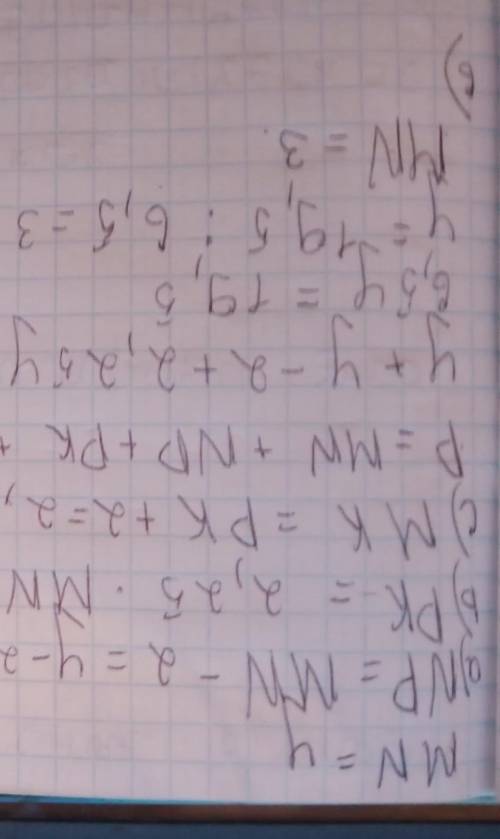 MN = y
a) NP = MN - 2 = y - 2
b) PK = 2,25 · MN
c) MK = PK + 2 = 2,
P = MN + NP + PK +
y + y - 2 + 2,25y
6,5y = 19,5
y = 19,5 : 6,5 = 3
MN = 3